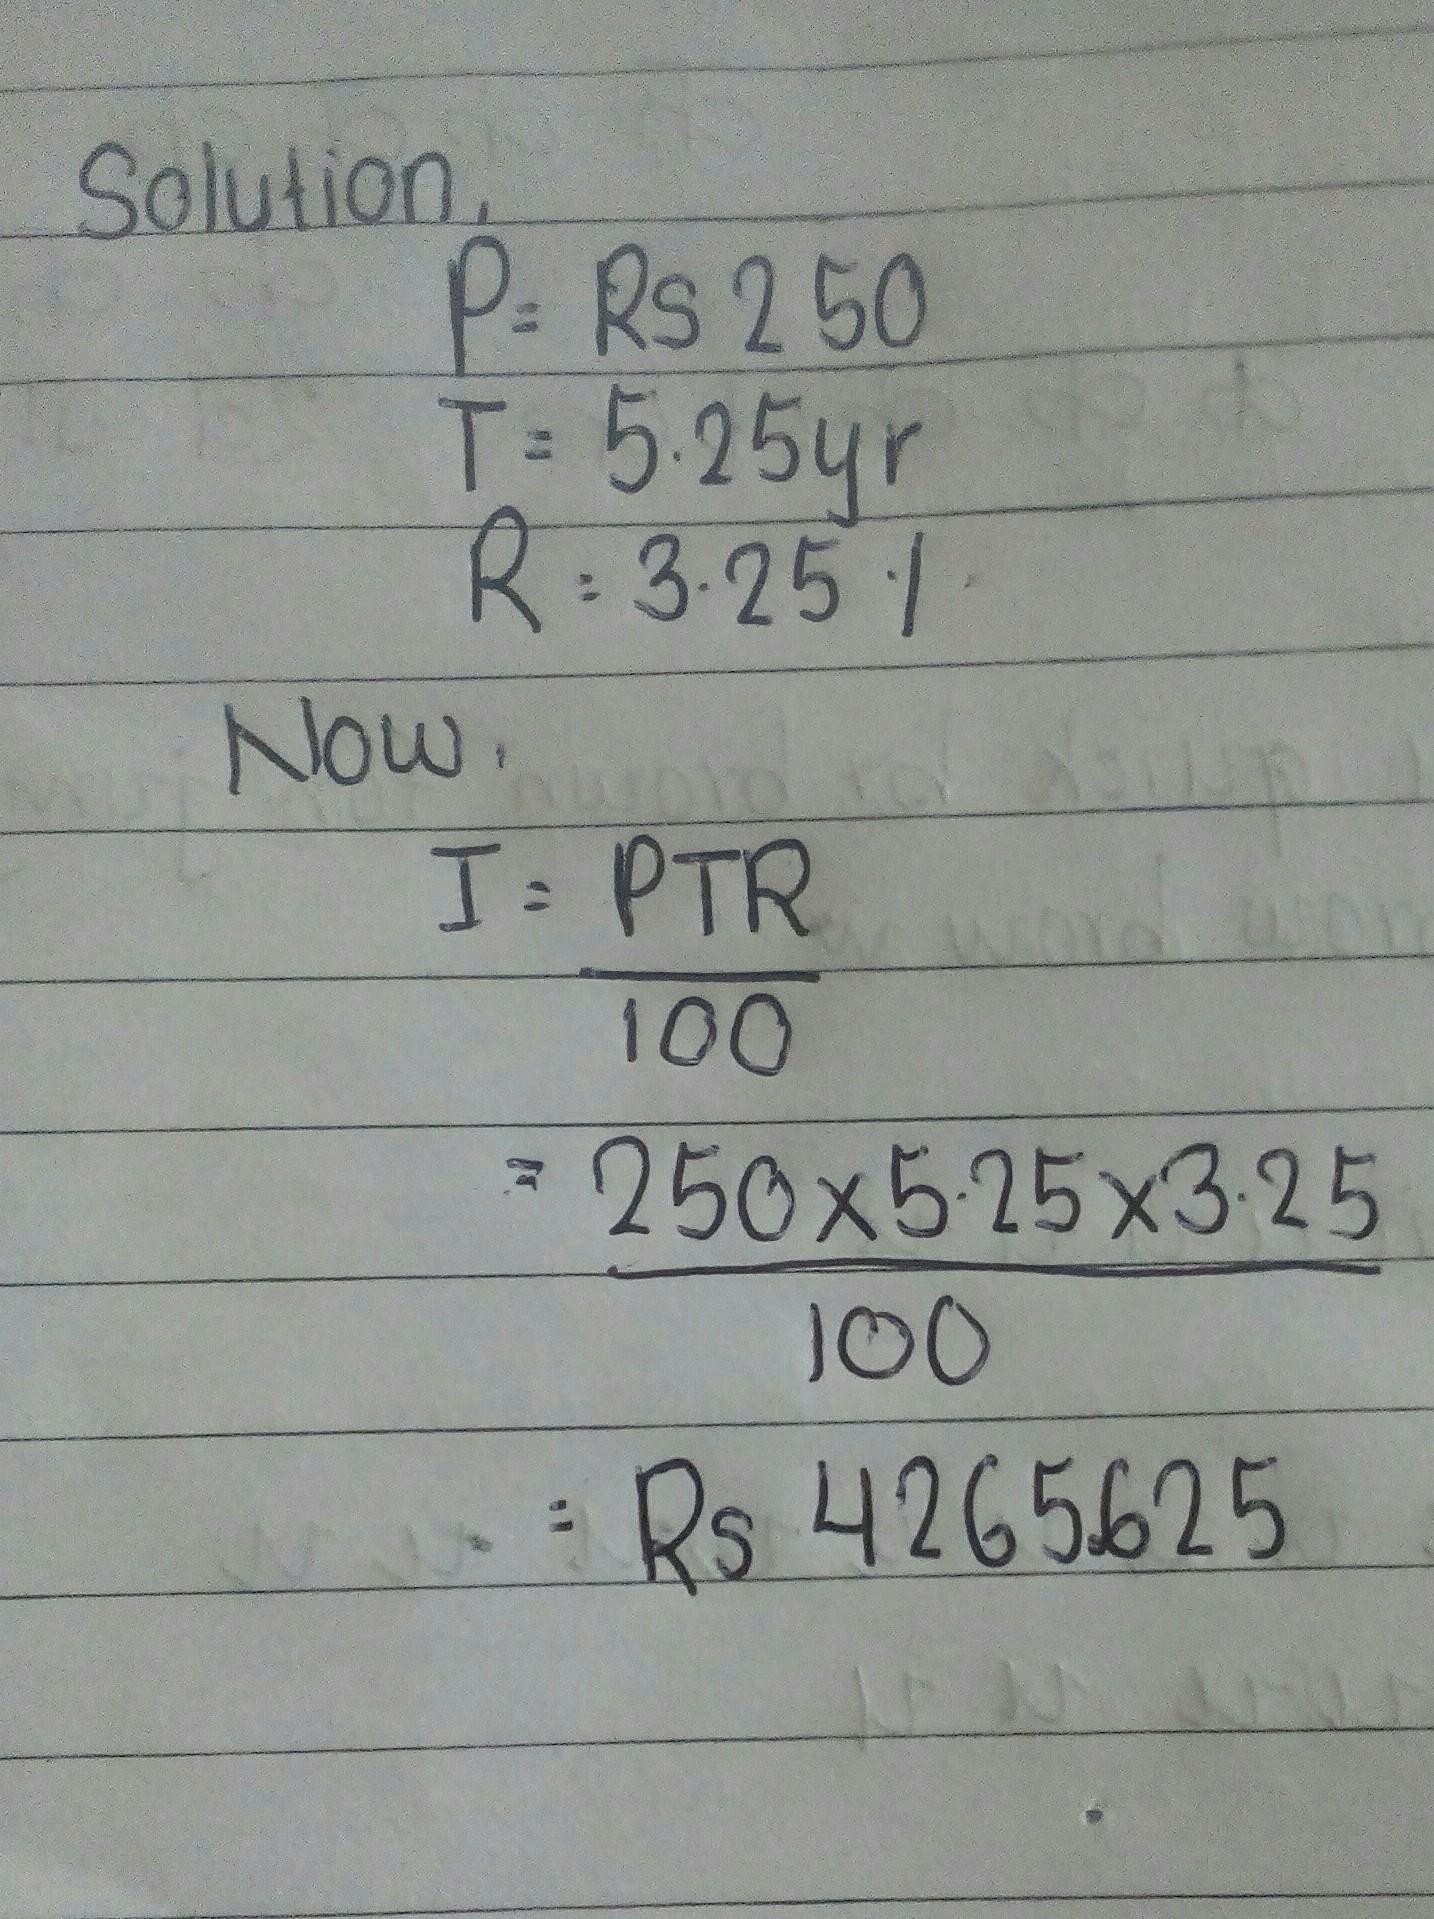 Solution,
P= Rs 250
T= 5.25yr
R = 3.25 %
Now,
I = PTR
100
= 250×5.25×3.25
100
= Rs 4265.625